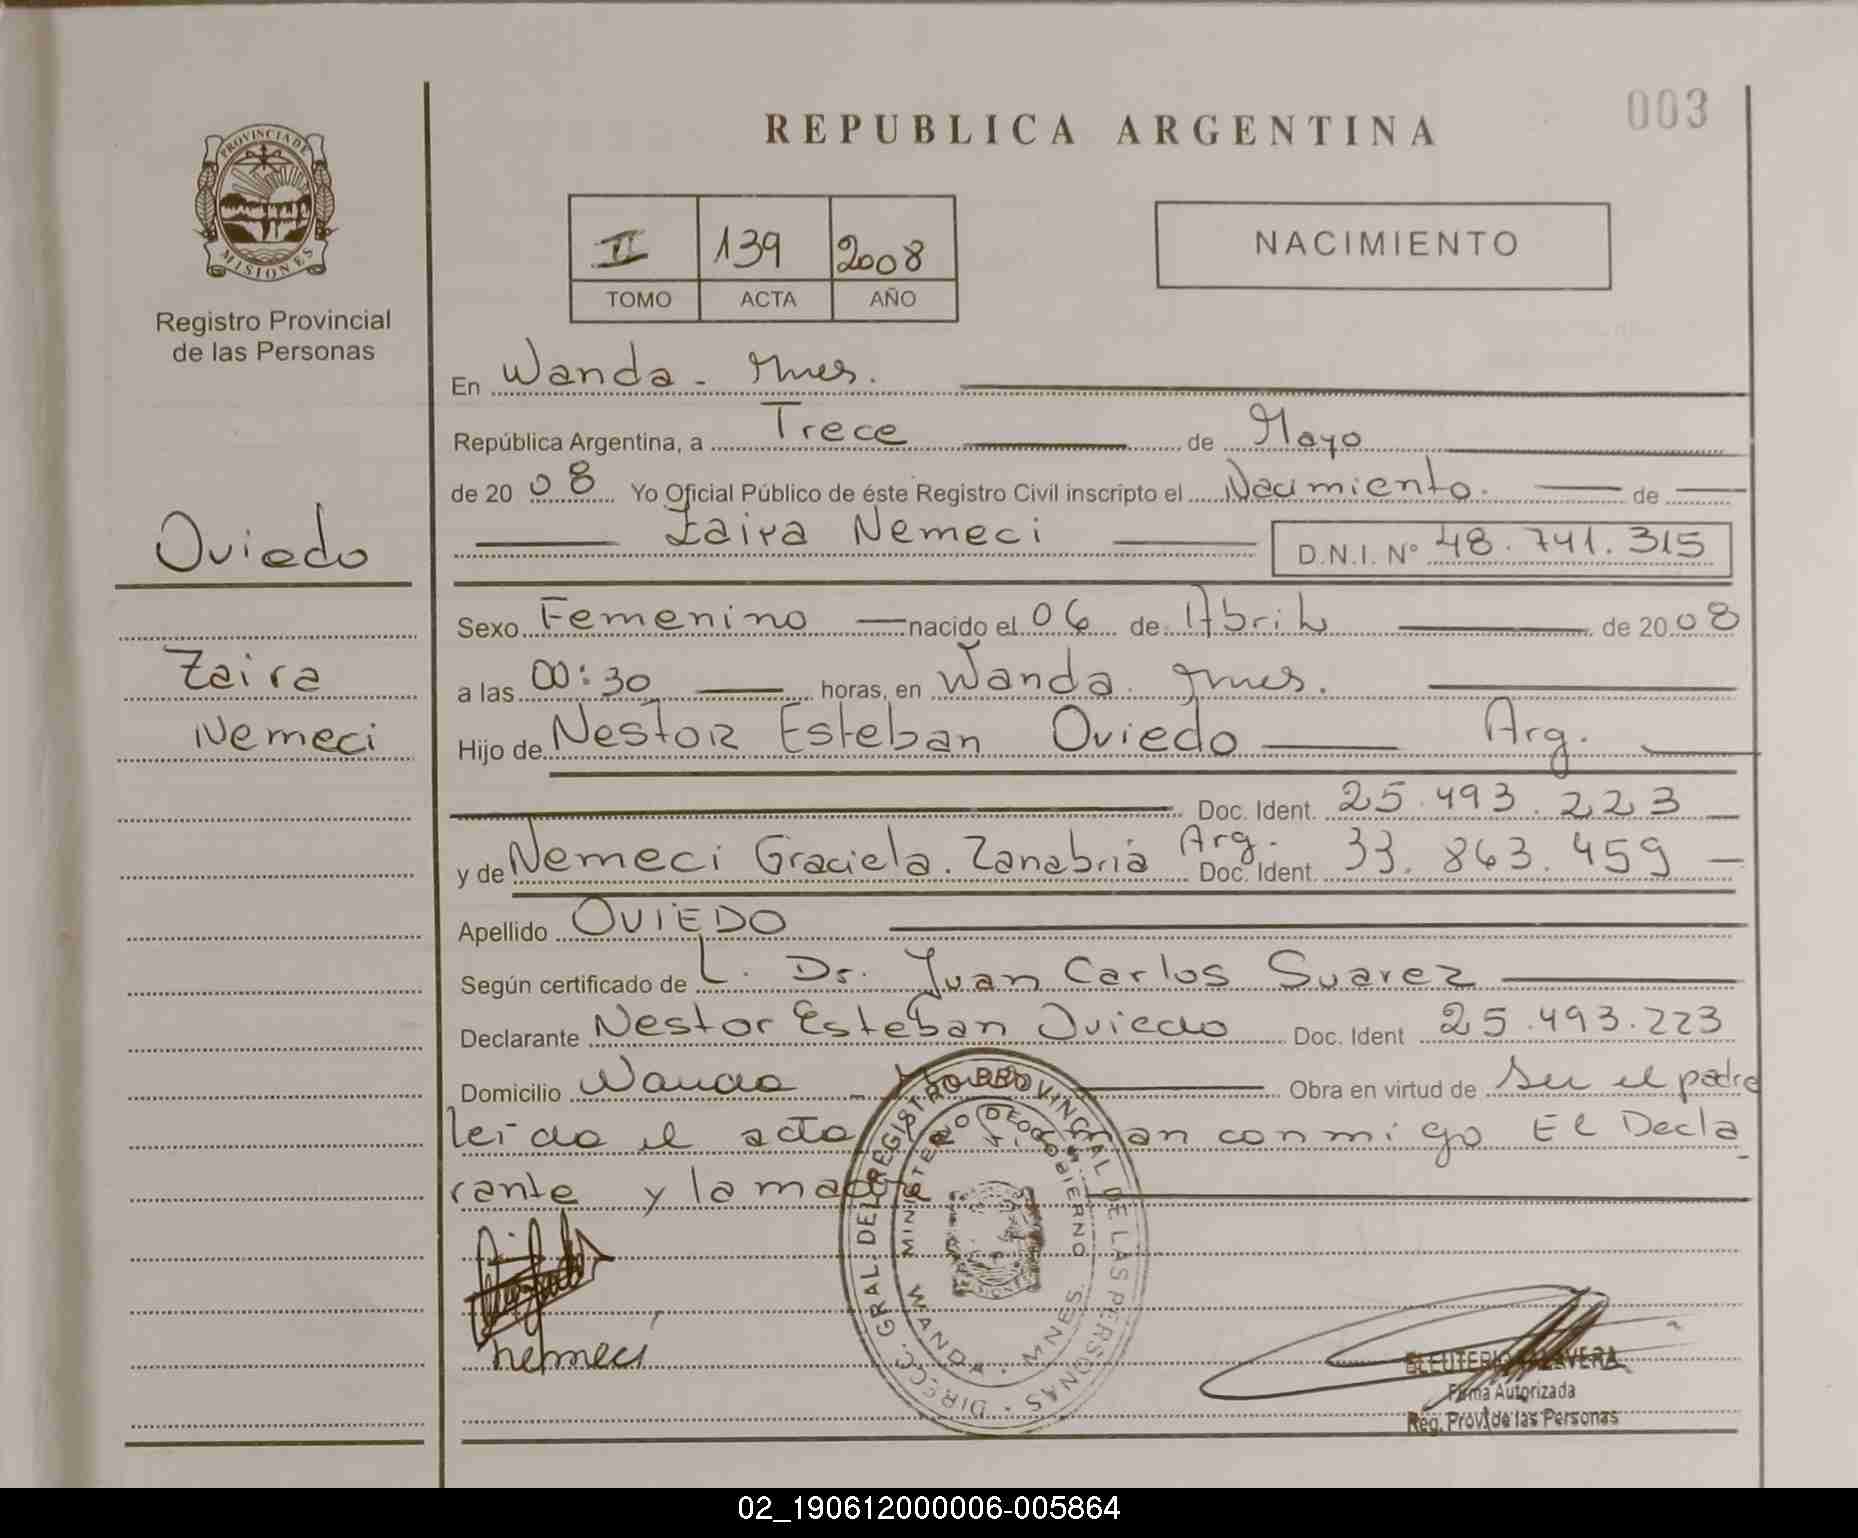 003
REPUBLICA ARGENTINA
PROVINCIA DE MISIONES
Registro Provincial
de las Personas
II 139 2008
TOMO ACTA AÑO
NACIMIENTO
Oviedo
Zaira
Nemeci
En Wanda - Mnes.
República Argentina, a Trece de Mayo
de 2008 Yo Oficial Público de éste Registro Civil inscripto el Nacimiento. de
Zaira Nemeci D.N.I. N° 48.741.315
Sexo Femenino nacido el 06 de Abril de 2008
a las 00:30 horas, en Wanda. Mnes.
Hijo de Nestor Esteban Oviedo Arg.
Doc. Ident. 25.493.223
y de Nemeci Graciela. Zanabria Arg. Doc. Ident. 33.863.459
Apellido OVIEDO
Según certificado de L. Dr. Juan Carlos Suarez
Declarante Nestor Esteban Oviedo Doc. Ident 25.493.223
Domicilio Wanda - Obra en virtud de ser el padre
leida el acta firman conmigo El Decla
rante y la madre
DIRECC. GRAL. DEL REGISTRO PROVINCIAL DE LAS PERSONAS
MINISTERIO DE GOBIERNO
WANDA - MNES.
Nemeci
ELEUTERIO TALAVERA
Firma Autorizada
Reg. Prov. de las Personas
02_190612000006-005864